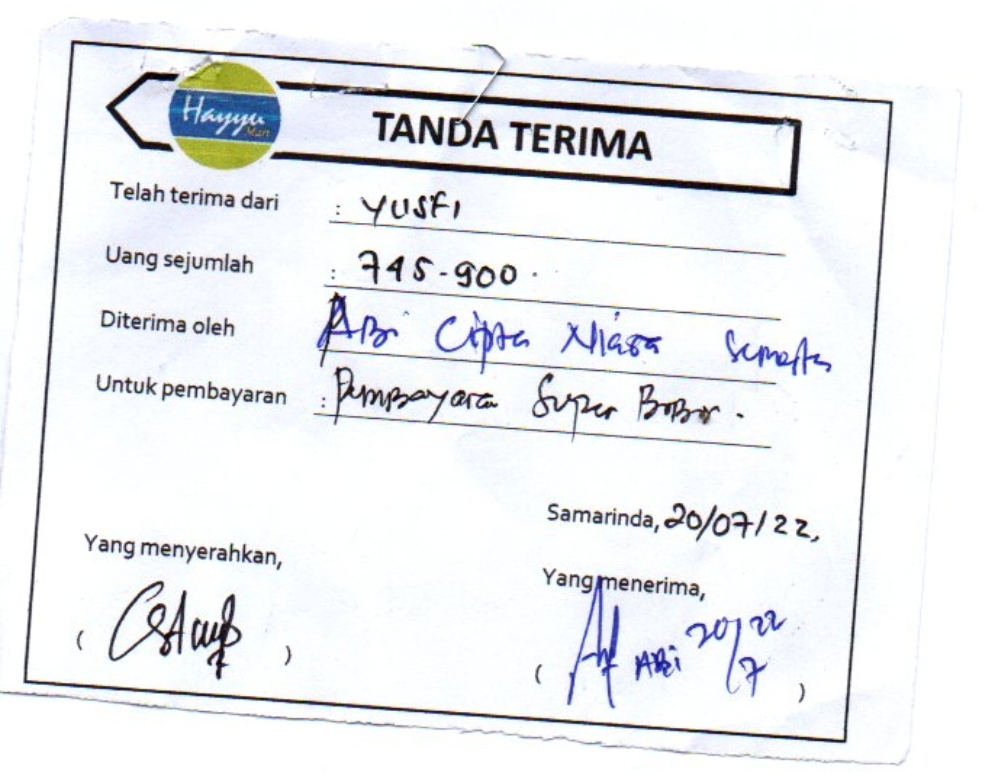 Hayyu
Mart
TANDA TERIMA
Telah terima dari : YUSFI
Uang sejumlah : 745-900.
Diterima oleh ABi Cipta Niaga Semesta
Untuk pembayaran : Pembayaran Super Bobor.
Samarinda, 20/07/22,
Yang menyerahkan, Yang menerima,
( ) ( ABi 20/7 22 )